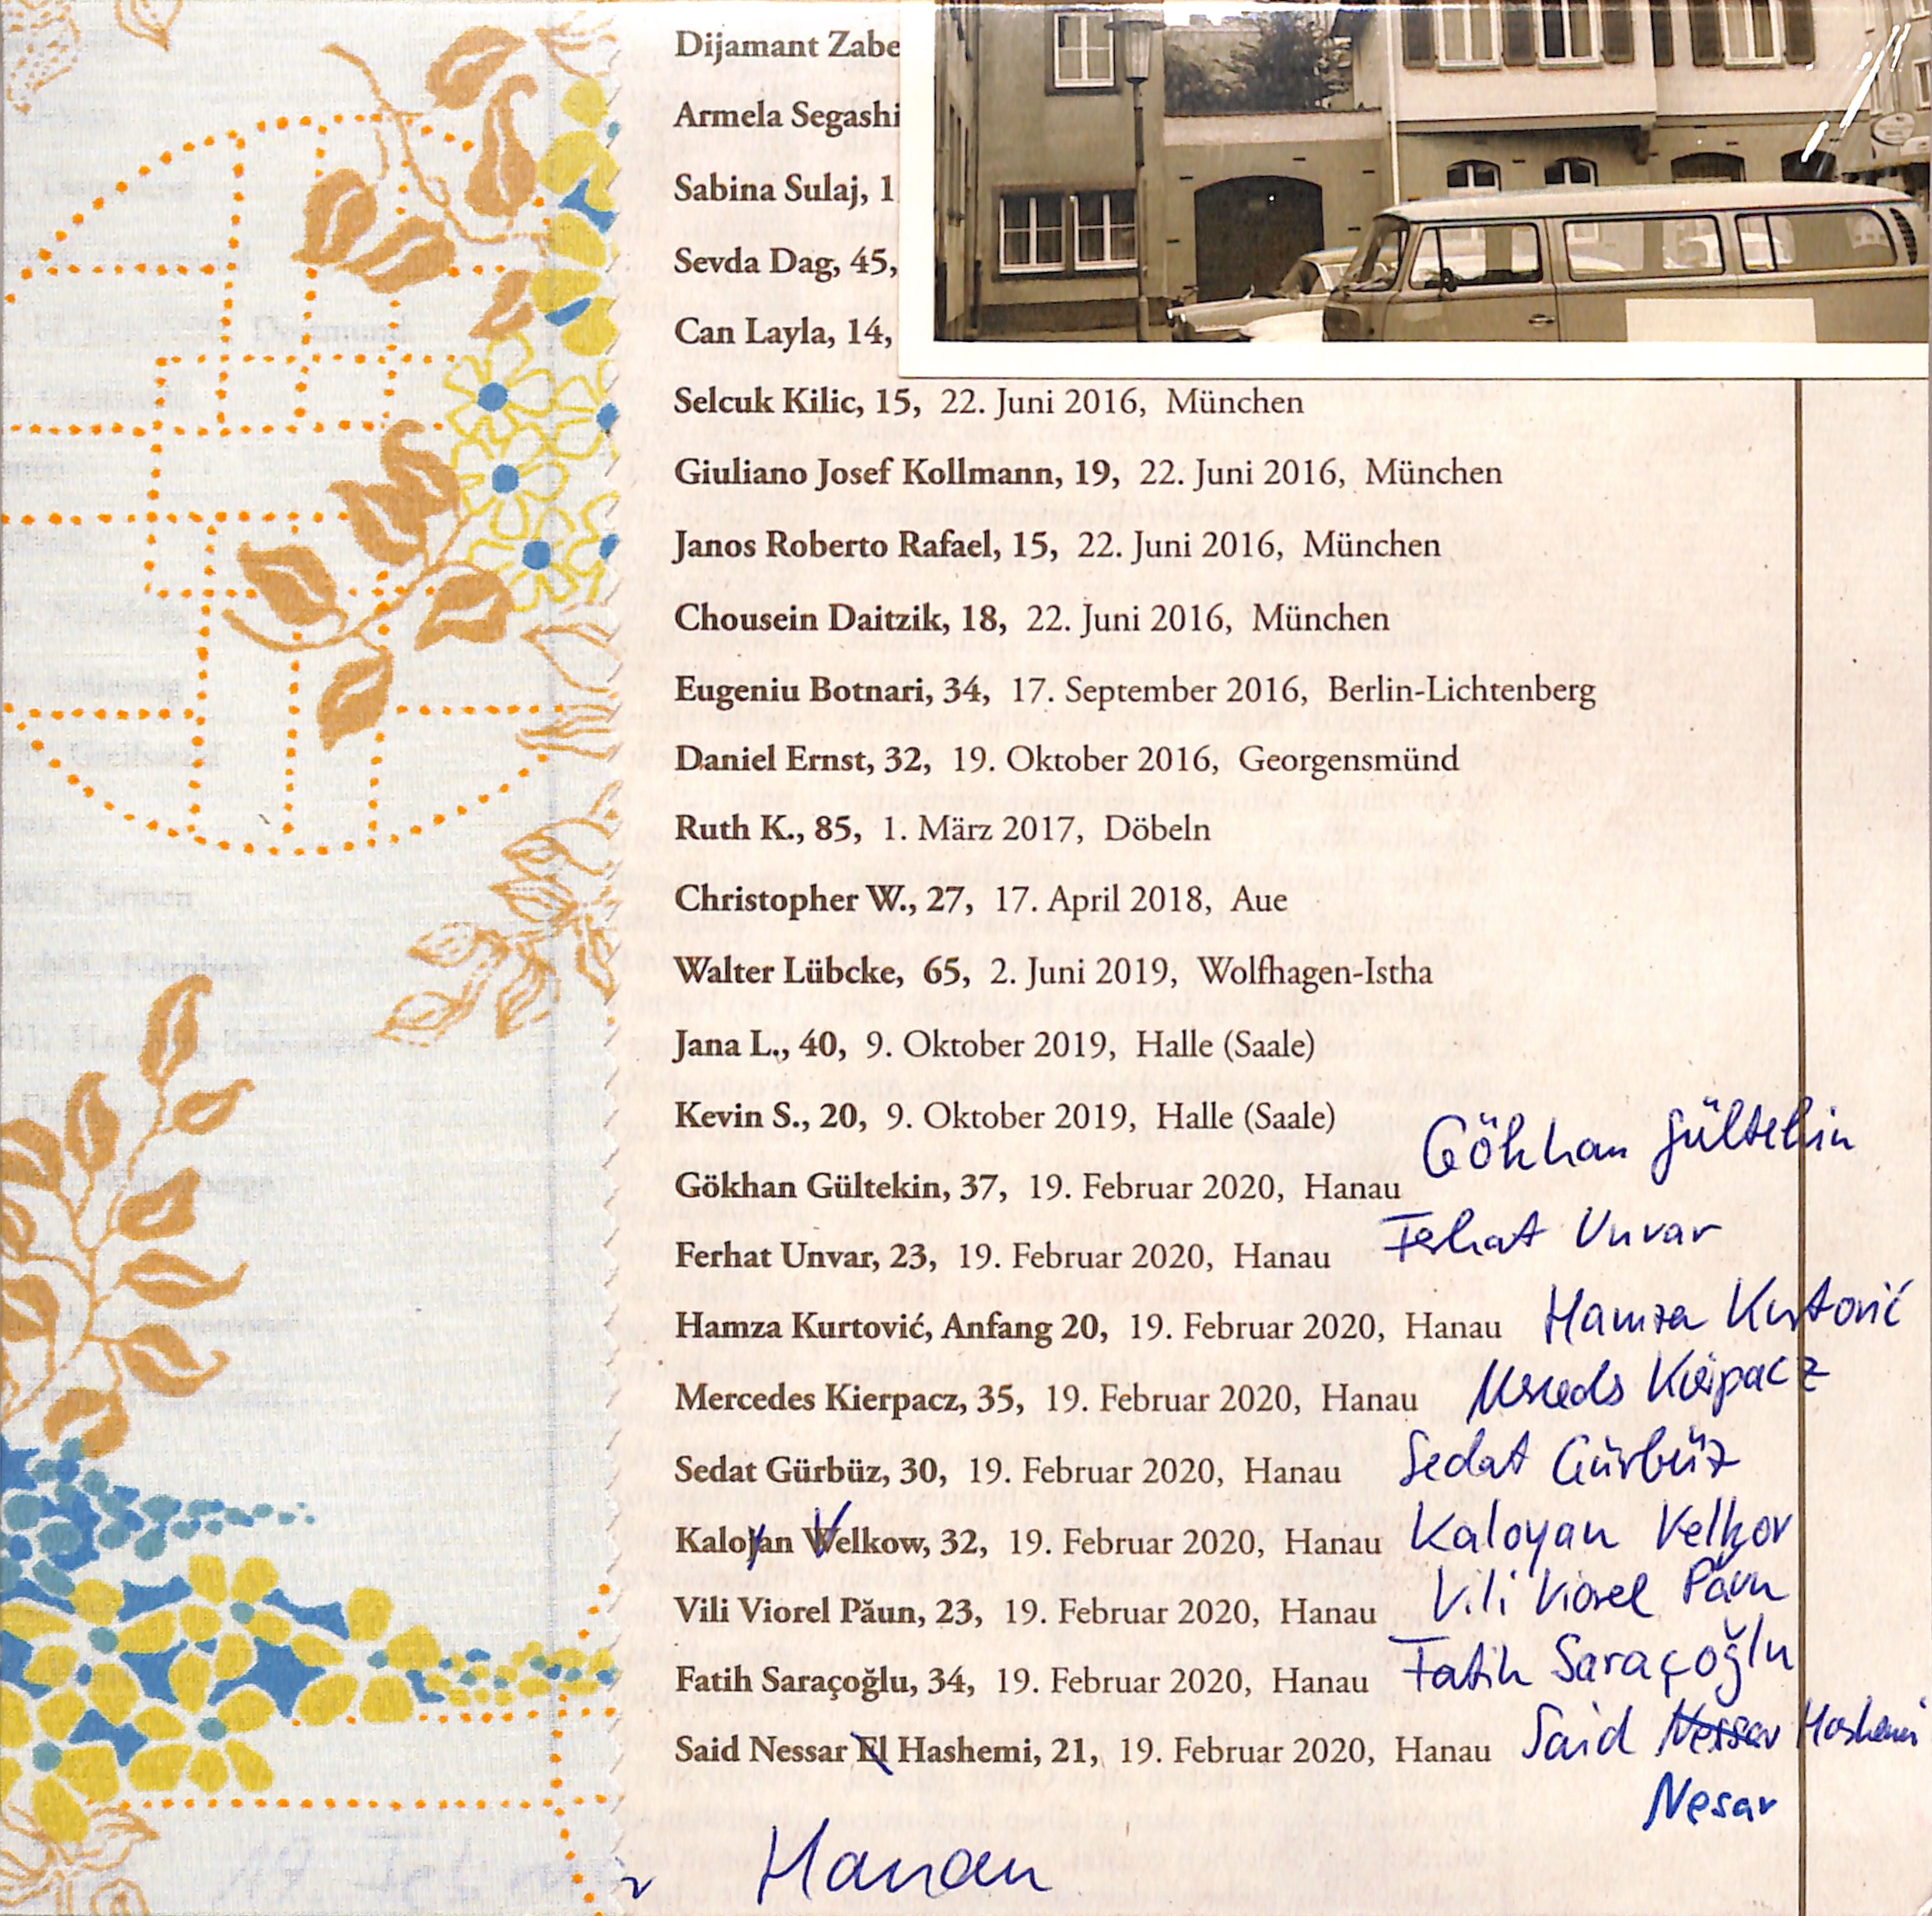 Dijamant Zabe
Armela Segashi
Sabina Sulaj, 1
Sevda Dag, 45,
Can Layla, 14,
Selcuk Kilic, 15, 22. Juni 2016, München
Giuliano Josef Kollmann, 19, 22. Juni 2016, München
Janos Roberto Rafael, 15, 22. Juni 2016, München
Chousein Daitzik, 18, 22. Juni 2016, München
Eugeniu Botnari, 34, 17. September 2016, Berlin-Lichtenberg
Daniel Ernst, 32, 19. Oktober 2016, Georgensmünd
Ruth K., 85, 1. März 2017, Döbeln
Christopher W., 27, 17. April 2018, Aue
Walter Lübcke, 65, 2. Juni 2019, Wolfhagen-Istha
Jana L., 40, 9. Oktober 2019, Halle (Saale)
Kevin S., 20, 9. Oktober 2019, Halle (Saale)
Gökhan Gültekin, 37, 19. Februar 2020, Hanau Gökhan Gültekin
Ferhat Unvar, 23, 19. Februar 2020, Hanau Ferhat Unvar
Hamza Kurtović, Anfang 20, 19. Februar 2020, Hanau Hamza Kurtović
Mercedes Kierpacz, 35, 19. Februar 2020, Hanau Mercedes Kierpacz
Sedat Gürbüz, 30, 19. Februar 2020, Hanau Sedat Gürbüz
Kaloyan Velkow, 32, 19. Februar 2020, Hanau Kaloyan Velkov
Vili Viorel Păun, 23, 19. Februar 2020, Hanau Vili Viorel Păun
Fatih Saraçoğlu, 34, 19. Februar 2020, Hanau Fatih Saraçoğlu
Said Nessar El Hashemi, 21, 19. Februar 2020, Hanau Said Nessar Hashemi
Nesar
Hanau